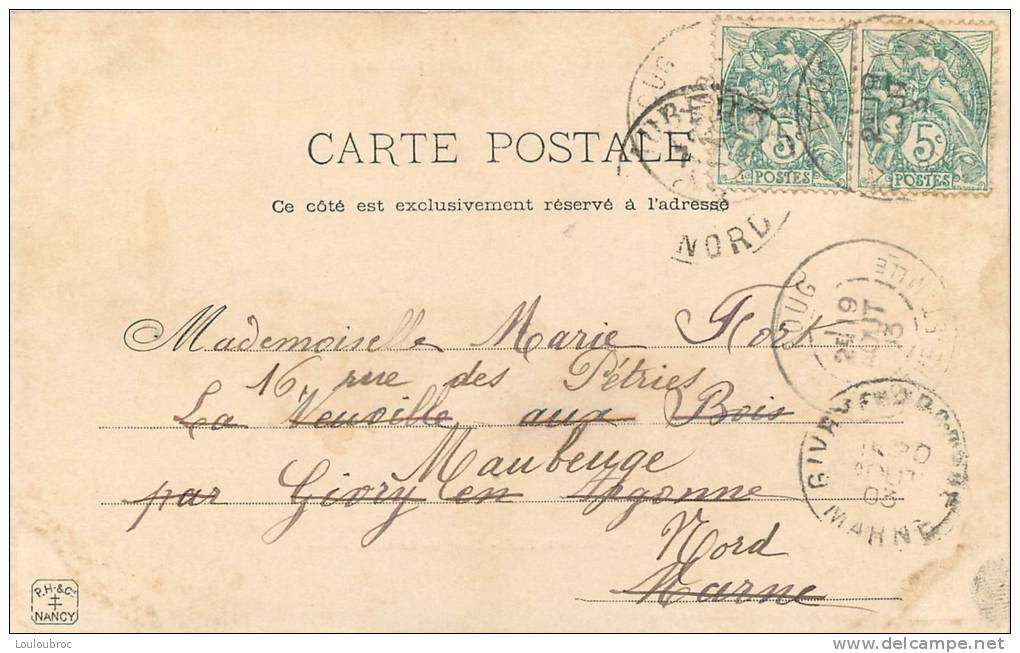 CARTE POSTALE
Ce côté est exclusivement réservé à l'adresse
5c
POSTES
5c
POSTES
NORD
Mademoiselle Marie Fort
16 rue des Pétries
La Neuville aux Bois
Maubeuge
par Givry en Argonne
Nord
Marne
19
AOUT
03
GIVRY
20
AOUT
03
MARNE
P.H.&Cie
NANCY
Louloubroc
delcampe.net